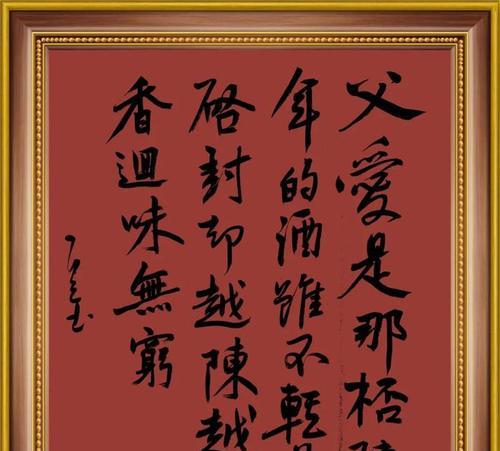 父愛是那杯
年的酒雖不輕
啓封却越陳越
香迴味無窮